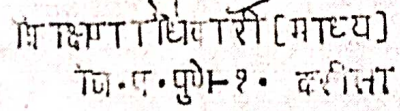 शिक्षणाधिकारी (माध्य)
जि.प.पुणे-१. करीता